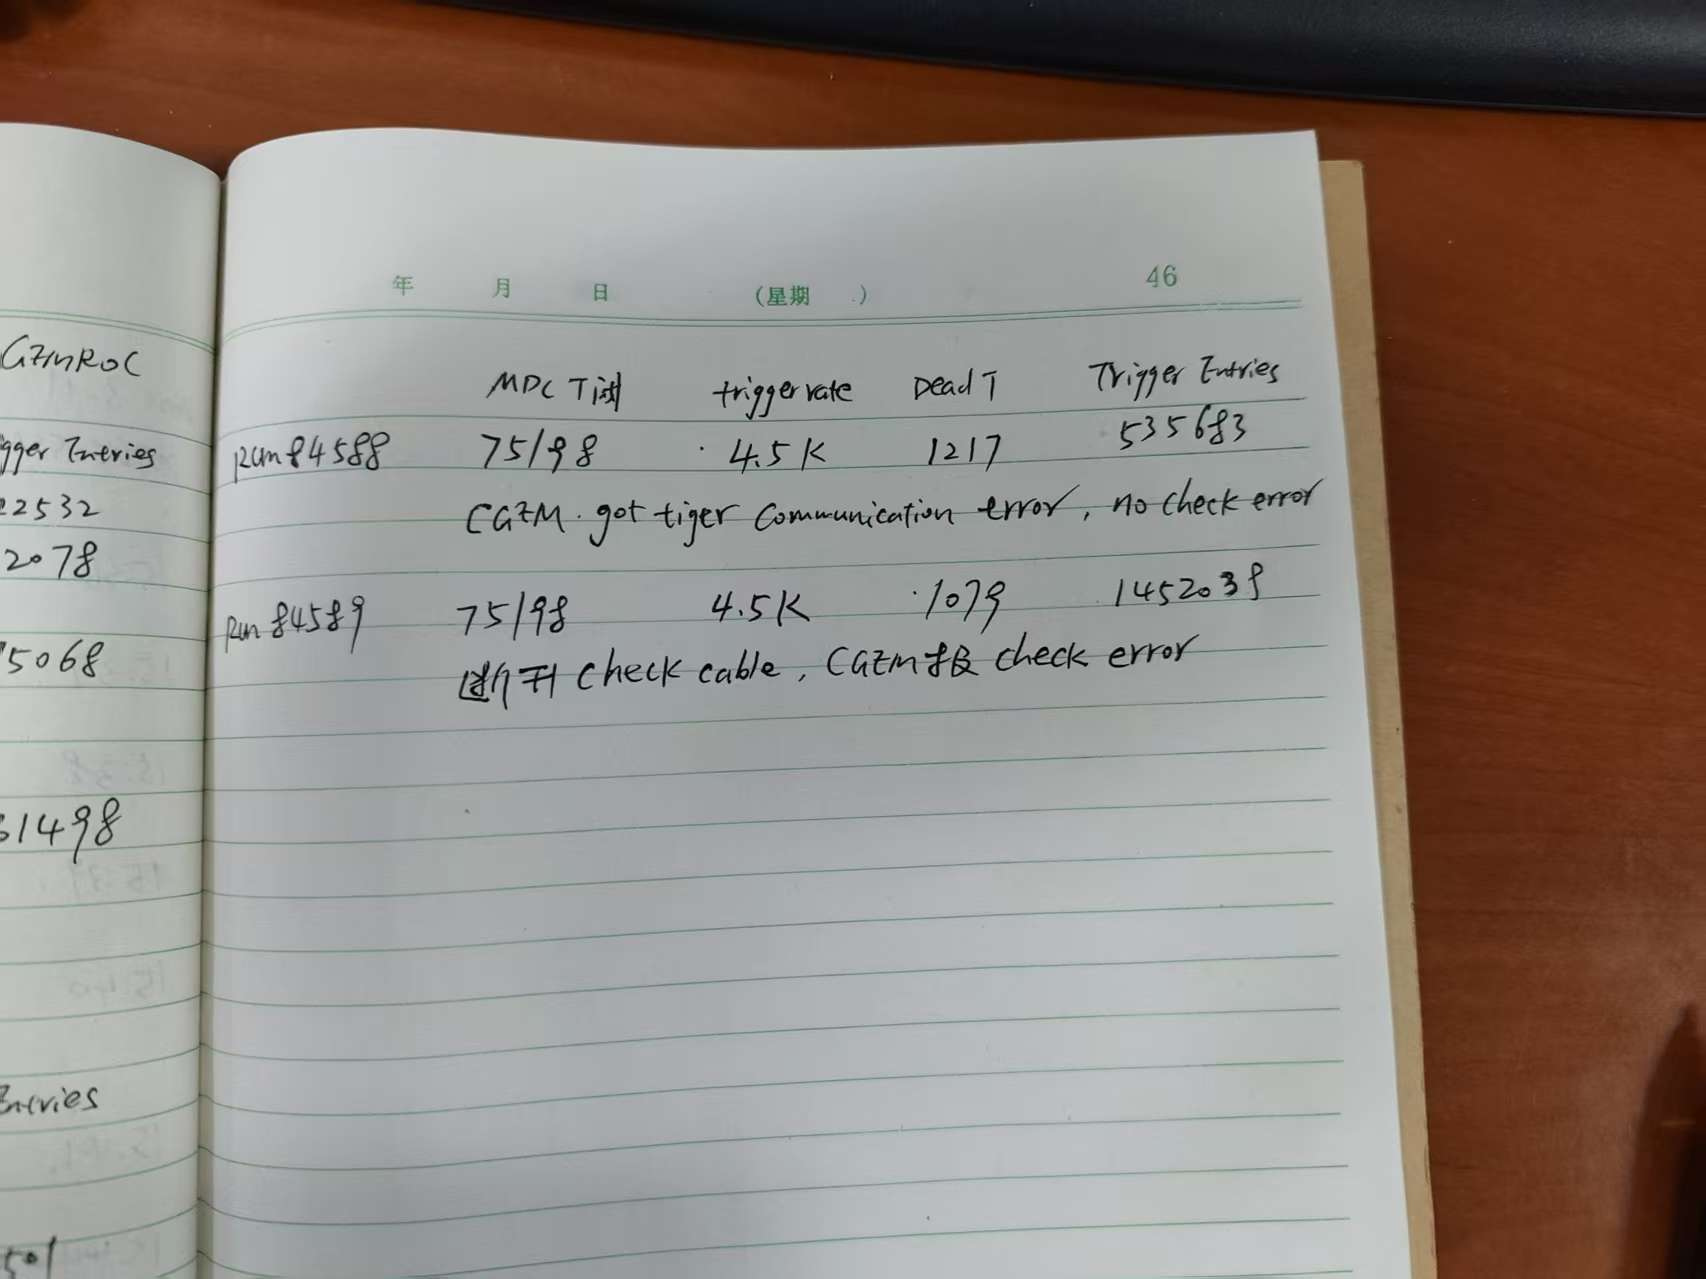 GEMROC
gger Entries
22532
2078
5068
31498
Entries
501
年 月 日 (星期 ) 46
MDC T阈 trigger rate Dead T Trigger Entries
Run 84588 75/98 4.5K 1217 535683
CGEM got tiger communication error, no check error
Run 84589 75/98 4.5K 1079 1452039
check cable, CGEM 报 check error